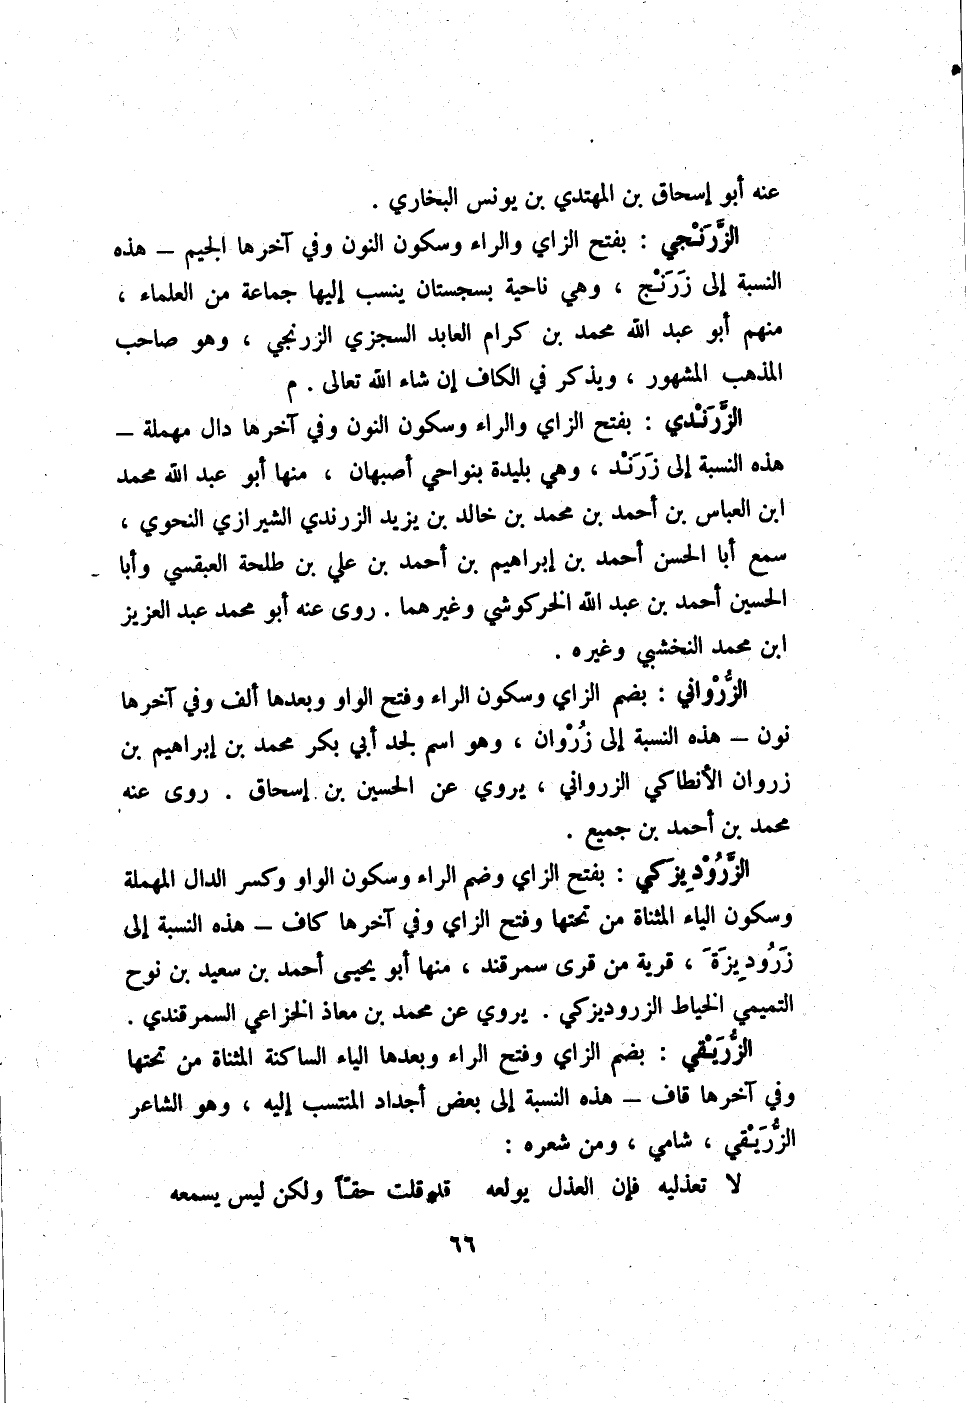 عنه أبو إسحاق بن المهتدي بن يونس البخاري .
الزَّرَنْجي : بفتح الزاي والراء وسكون النون وفي آخرها الجيم – هذه
النسبة إلى زَرَنْج ، وهي ناحية بسجستان ينسب إليها جماعة من العلماء ،
منهم أبو عبد الله محمد بن كرام العابد السجزي الزرنجي ، وهو صاحب
المذهب المشهور ، ويذكر في الكاف إن شاء الله تعالى . م
الزَّرَنْدي : بفتح الزاي والراء وسكون النون وفي آخرها دال مهملة –
هذه النسبة إلى زَرَنْد ، وهي بليدة بنواحي أصبهان ، منها أبو عبد الله محمد
ابن العباس بن أحمد بن محمد بن خالد بن يزيد الزرندي الشيرازي النحوي ،
سمع أبا الحسن أحمد بن إبراهيم بن أحمد بن علي بن طلحة العبقسي وأبا
الحسين أحمد بن عبد الله الخركوشي وغيرهما . روى عنه أبو محمد عبد العزيز
ابن محمد النخشبي وغيره .
الزُّرْواني : بضم الزاي وسكون الراء وفتح الواو وبعدها ألف وفي آخرها
نون – هذه النسبة إلى زُرْوان ، وهو اسم لجد أبي بكر محمد بن إبراهيم بن
زروان الأنطاكي الزرواني ، يروي عن الحسين بن إسحاق . روى عنه
محمد بن أحمد بن جميع .
الزَّرُوْدِيزكي : بفتح الزاي وضم الراء وسكون الواو وكسر الدال المهملة
وسكون الياء المثناة من تحتها وفتح الزاي وفي آخرها كاف – هذه النسبة إلى
زَرُودِيزَة َ ، قرية من قرى سمرقند ، منها أبو يحيى أحمد بن سعيد بن نوح
التميمي الخياط الزروديزكي . يروي عن محمد بن معاذ الخزاعي السمرقندي .
الزُّرَيْقي : بضم الزاي وفتح الراء وبعدها الياء الساكنة المثناة من تحتها
وفي آخرها قاف – هذه النسبة إلى بعض أجداد المنتسب إليه ، وهو الشاعر
الزُّرَيْقي ، شامي ، ومن شعره :
لا تعذليه فإن العذل يولعه قد قلت حقاً ولكن ليس يسمعه
٦٦